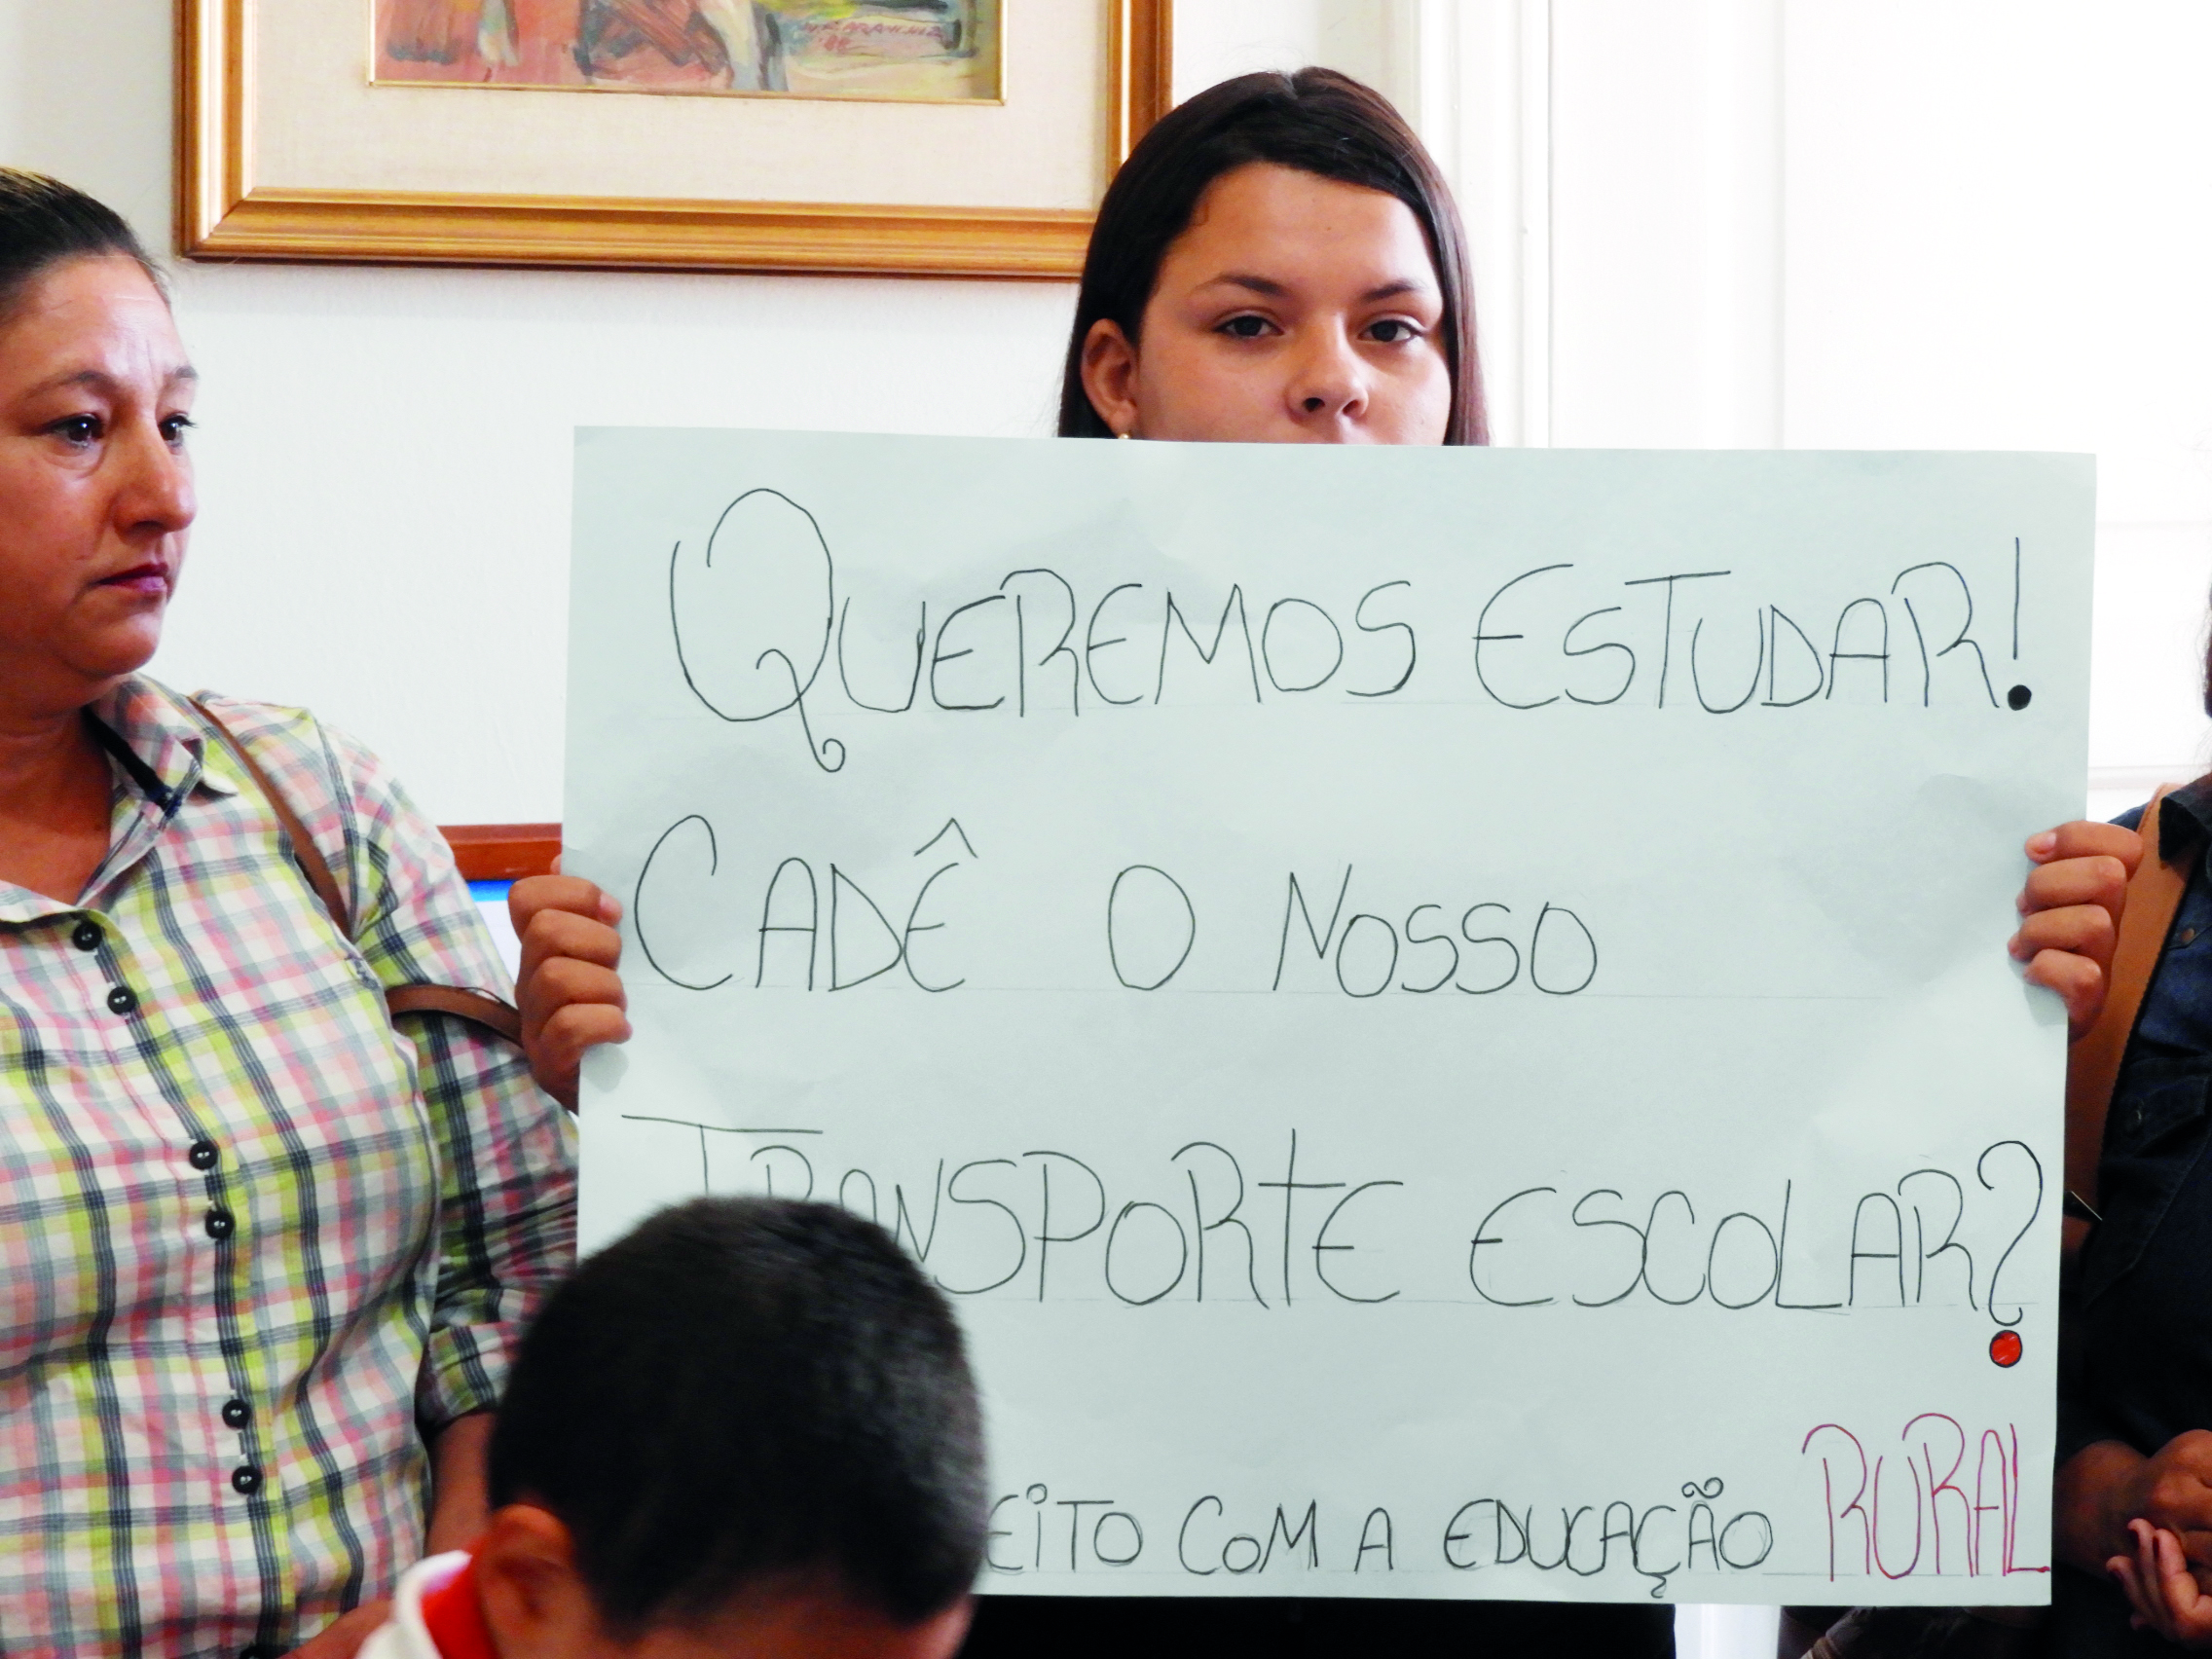 QUEREMOS ESTUDAR!
CADÊ O NOSSO
TRANSPORTE ESCOLAR?
COM A EDUCAÇÃO RURAL